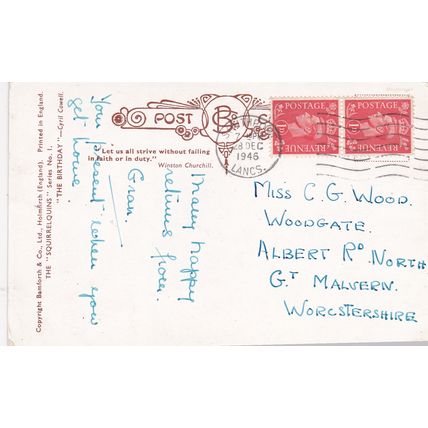 POST
Let us all strive without failing
in faith or in duty."
Winston Churchill.
POSTAGE
REVENUE
POSTAGE
REVENUE
28 DEC
1946
LANCS.
Many happy
returns from
Gran.
Your present when you
get home.
MISS C. G. WOOD.
WOODGATE.
ALBERT RD NORTH
GT MALVERN.
WORCSTERSHIRE
"THE BIRTHDAY"—Cyril Cowell.
THE "SQUIRRELQUINS" Series No. 1.
Copyright Bamforth & Co., Ltd., Holmfirth (England). Printed in England.